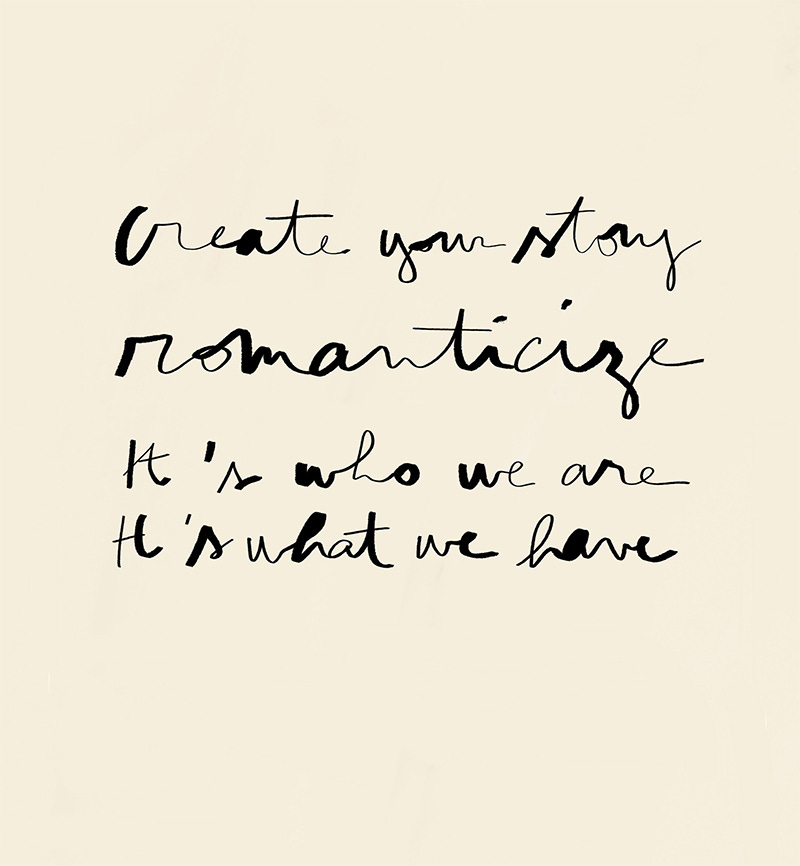 Create your story
romanticize
It's who we are
It's what we have